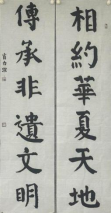 相約華夏天地
傳承非遺文明